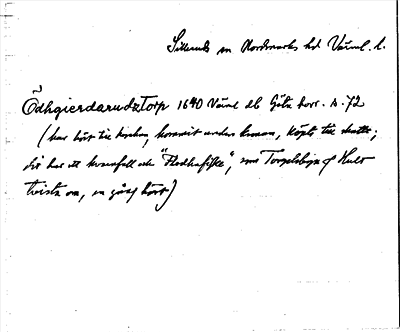 Sillerud sn Nordmarks hd Värml. l.
ÖdhgierdarudzTorp 1640 Värml. elb Göta horr. s. 72
(har hört till kyrkan, kommit under kronan, köpt till skatte;
där har ett kvarnfall och "Flodhafiske", som Torpelsbyn o Hult
tvista om, en gång hört)